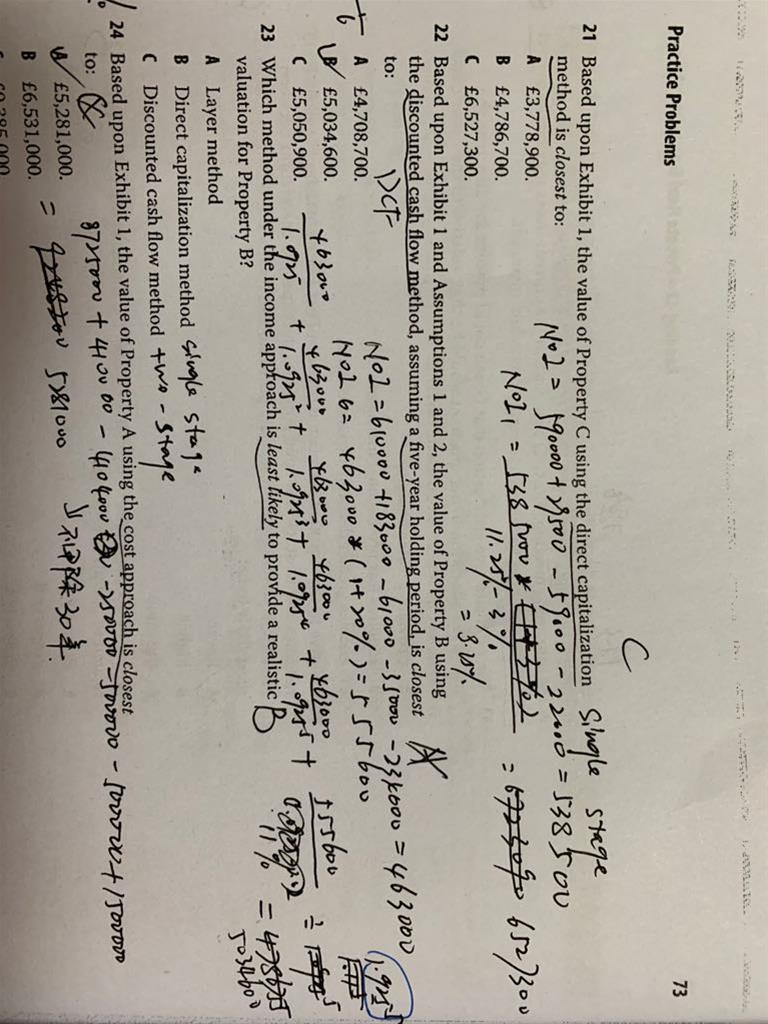 Practice Problems
73
C
21 Based upon Exhibit 1, the value of Property C using the direct capitalization single stage
method is closest to:
NOI = 590000 + 29500 - 59000 - 22000 = 538500
A £3,778,900.
NOI1 = 538500
11.25% - 3%
= 6527300
B £4,786,700.
= 8.25%
C £6,527,300.
22 Based upon Exhibit 1 and Assumptions 1 and 2, the value of Property B using
the discounted cash flow method, assuming a five-year holding period, is closest
to:
DCF
NOI = 610000 + 183000 - 61000 - 35000 - 234000 = 463000
A £4,708,700.
NOI 6 = 463000 * (1+20%) = 555600
B £5,034,600.
C £5,050,900.
463000 463000 463000 463000 463000 555600
1.0925 + 1.0925² + 1.0925³ + 1.0925⁴ + 1.0925⁵ + 11% ÷ 1.0925⁵
= 5034600
23 Which method under the income approach is least likely to provide a realistic B
valuation for Property B?
A Layer method
B Direct capitalization method single stage
C Discounted cash flow method two-stage
24 Based upon Exhibit 1, the value of Property A using the cost approach is closest
to:
8725000 + 410000 - 4104000 - 250000 - 500000 - 500000 + 1500000
A £5,281,000.
= 5281000
B £6,531,000.